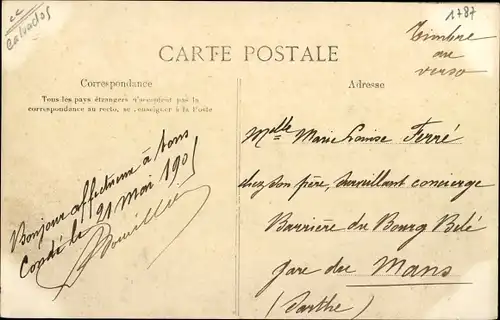 Calvados
1787
Timbre
au
verso
CARTE POSTALE
Correspondance
Tous les pays étrangers n'acceptent pas la
correspondance au recto, se renseigner à la Poste
Adresse
Bonjour affectueux à tous
Condé le 21 Mai 190
Melle Marie Louise Ferré
chez son père, surveillant concierge
Barrière du Bourg Belé
gare du Mans
(Sarthe)